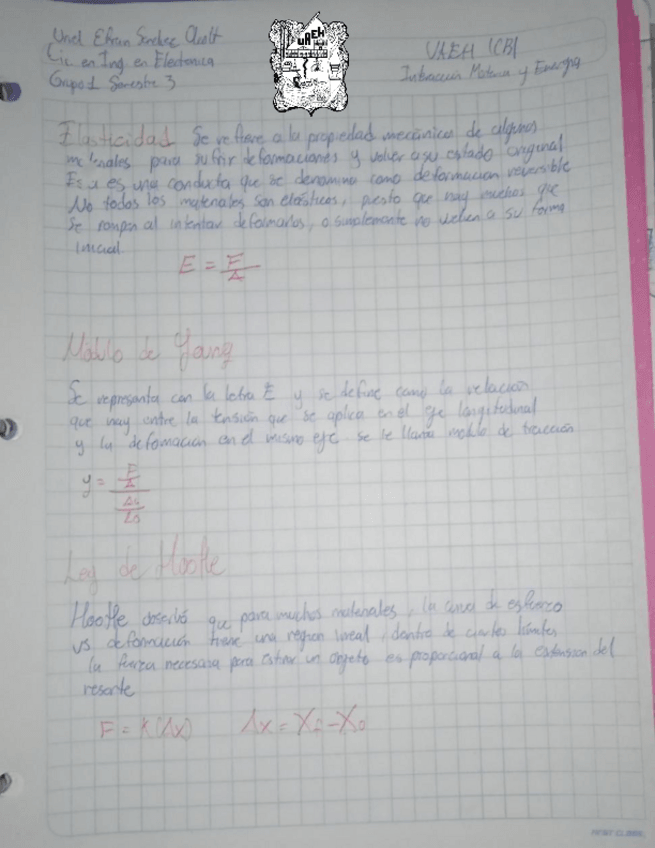 Uriel Efrain Sanchez
Lic en Ing. en Electronica
Grupo 1 Semestre 3
UAEH
UAEH ICBI
Interacción Materia y Energía
Elasticidad Se refiere a la propiedad mecánica de algunos
materiales para sufrir deformaciones y volver a su estado original
Esa es una conducta que se denomina como deformación reversible
No todos los materiales son elásticos, puesto que hay muchos que
se rompen al intentar deformarlos, o simplemente no vuelven a su forma
inicial.
E = F/A
Módulo de Young
Se representa con la letra E y se define como la relación
que hay entre la tensión que se aplica en el eje longitudinal
y la deformación en el mismo eje se le llama modulo de tracción
y = F/A / ΔL/Lo
Ley de Hooke
Hooke observó que para muchos materiales, la curva de esfuerzo
vs deformación tiene una region lineal, dentro de ciertos límites
la fuerza necesaria para estirar un objeto es proporcional a la extension del
resorte
F = K(Δx) Δx = Xf - Xo